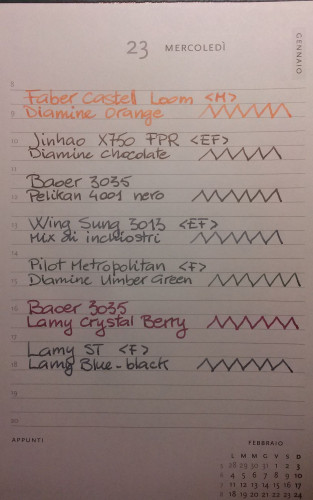 23 MERCOLEDÌ
GENNAIO
8
Faber Castel Loom <M>
9
Diamine Orange
10
Jinhao X750 FPR <EF>
11
Diamine Chocolate
Baoer 3035
12
Pelikan 4001 nero
13
Wing Sung 3013 <EF>
14
Mix di inchiostri
Pilot Metropolitan <F>
15
Diamine Umber Green
16
Baoer 3035
Lamy Crystal Berry
17
Lamy ST <F>
18
Lamy Blue-black
19
20
APPUNTI
FEBBRAIO
L M M G V S D
5 28 29 30 31 1 2 3
6 4 5 6 7 8 9 10
7 11 12 13 14 15 16 17
8 18 19 20 21 22 23 24